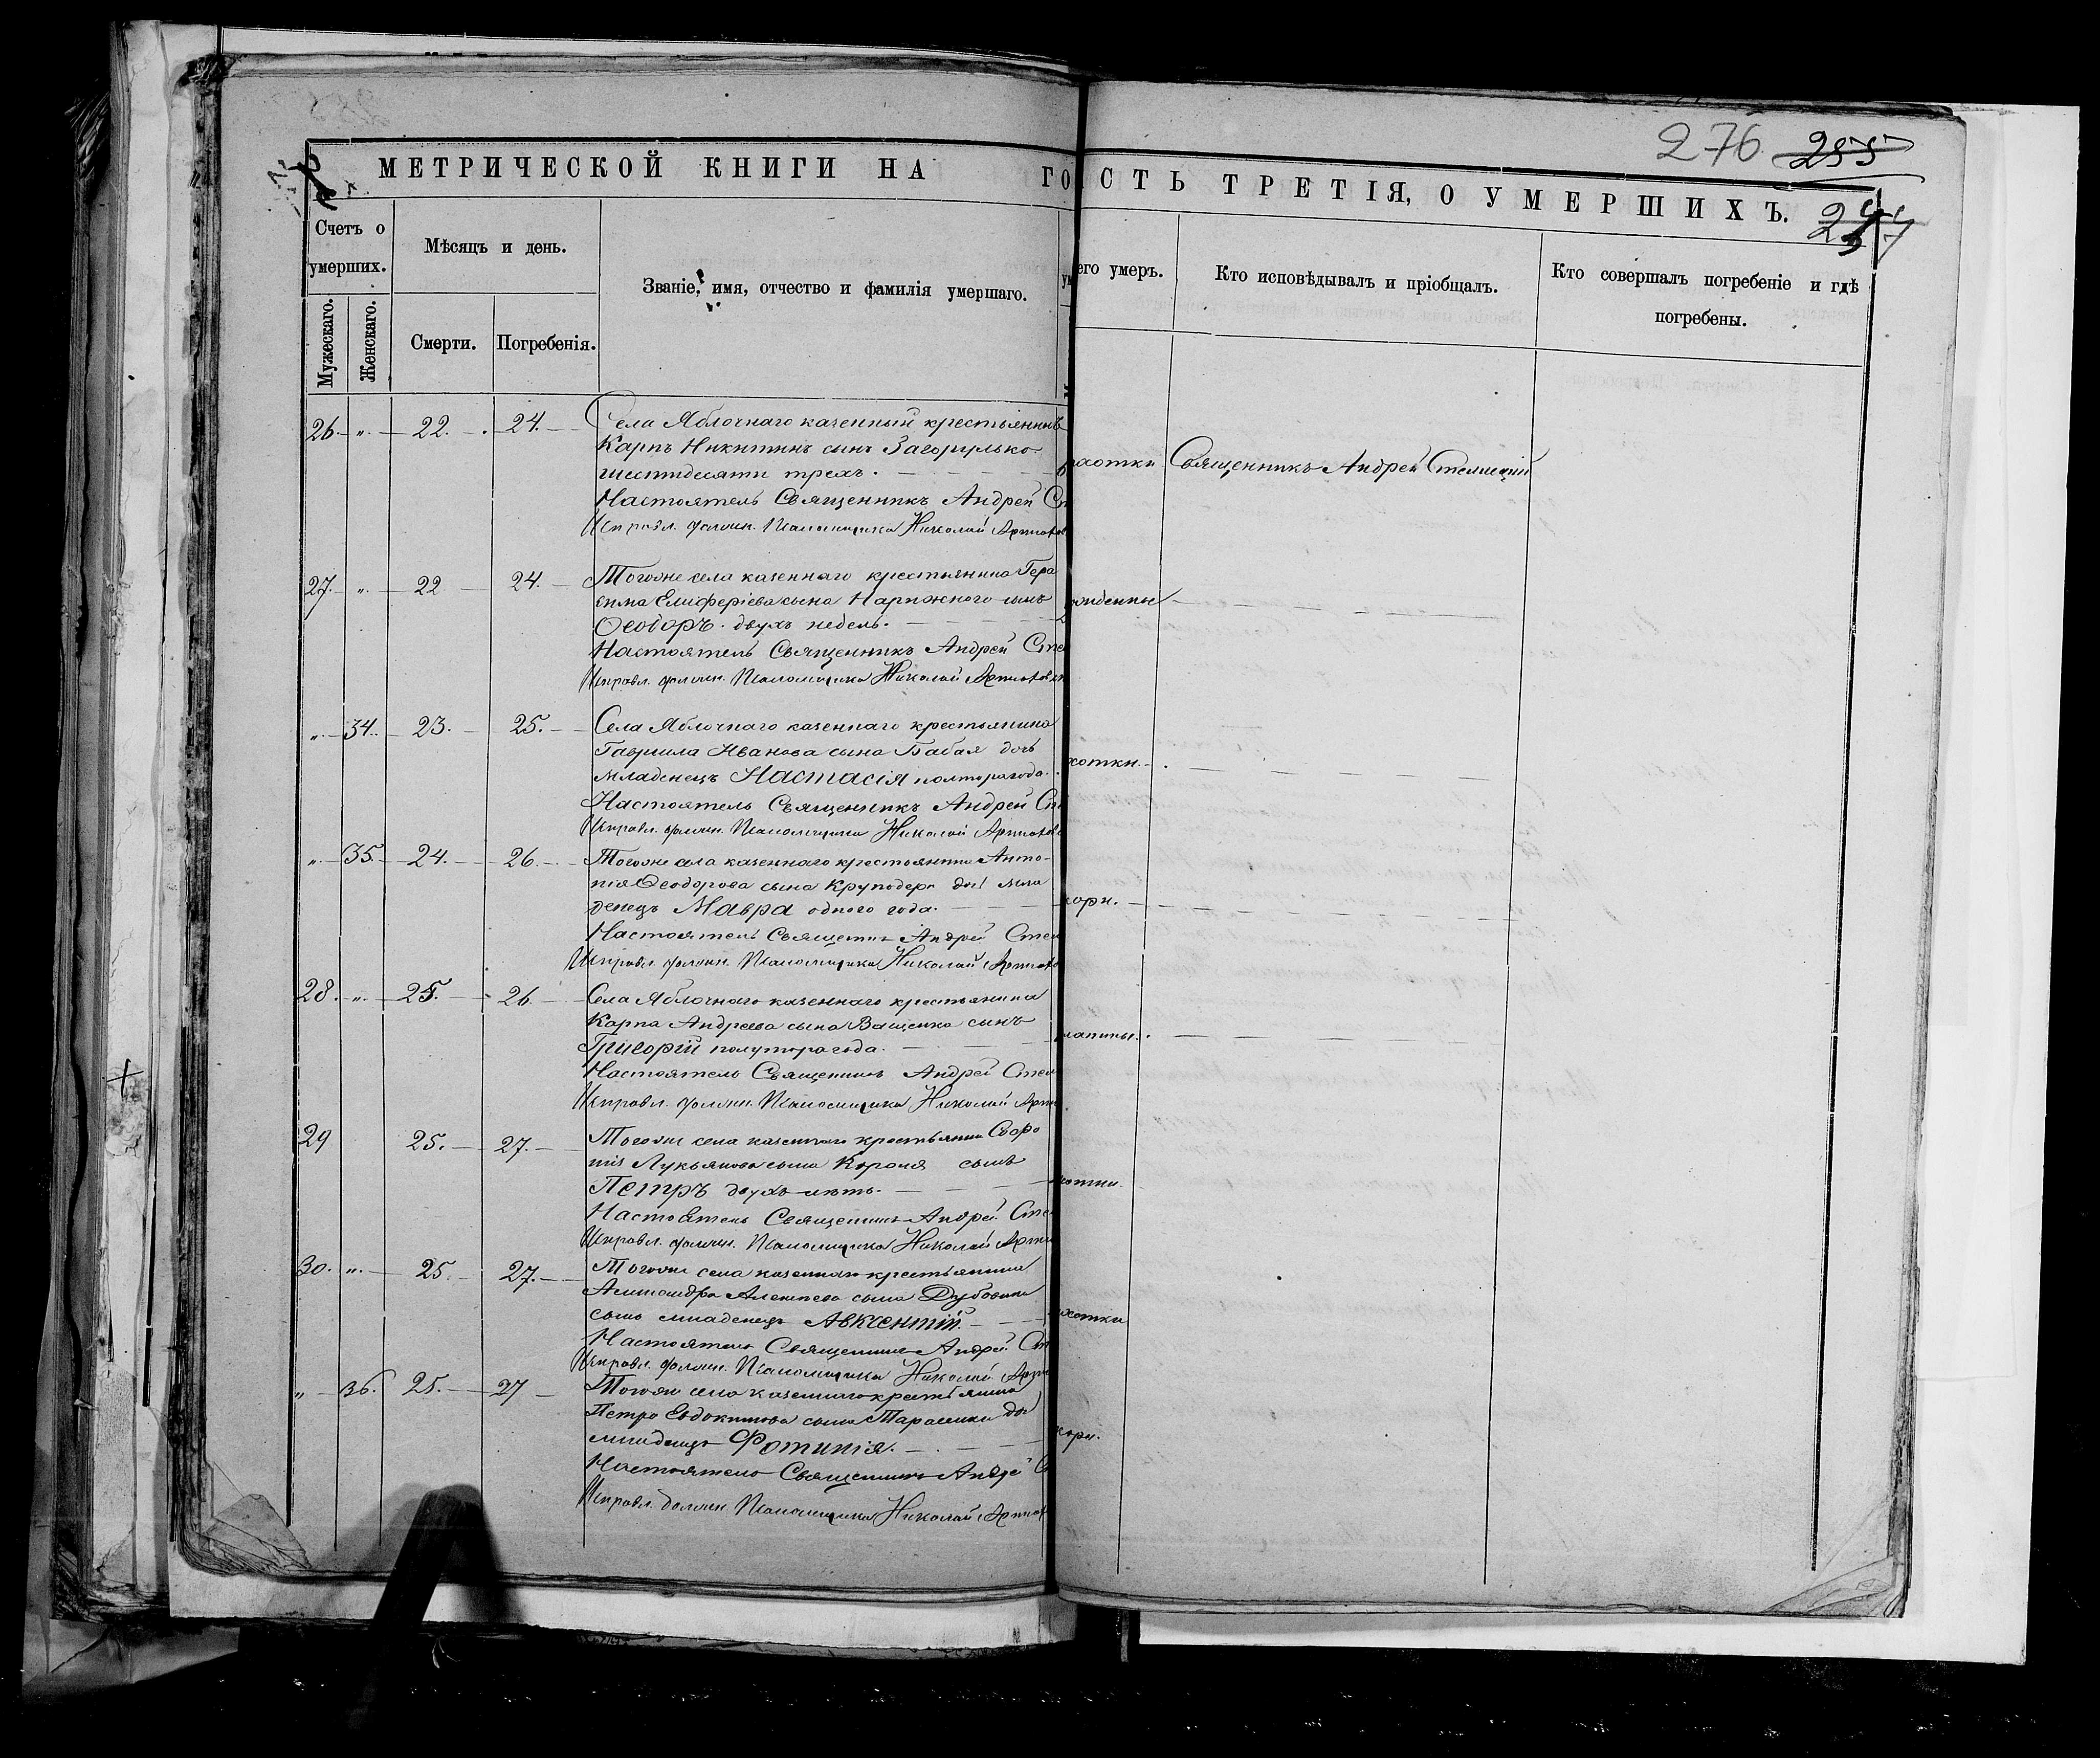 276 255
МЕТРИЧЕСКОЙ КНИГИ НА ГО
СТЬ ТРЕТІЯ, О УМЕРШИХЪ.
Счетъ о умершихъ.
Мужескаго.
Женскаго.
Мѣсяцъ и день.
Смерти.
Погребенія.
Званіе, имя, отчество и фамилія умершаго.
его умеръ.
Кто исповѣдывалъ и пріобщалъ.
Кто совершалъ погребеніе и гдѣ
погребены.
26. „ 22. 24. Села Яблочнаго казенный крестьянинъ
Карпъ Никитинъ сынъ Загорулько
шестидесяти трехъ.
хотки Священникъ Андрей Стеллецкій
Настоятель Священникъ Андрей Ст
Исправл. должн. Псаломщика Николай
27. „ 22 24. Тогоже села казеннаго крестьянина Гера
сима Елисферіева сына Нарижного сынъ
Ѳеодоръ. двухъ недель.
Настоятель Священникъ Андрей Сте
Исправл. должн. Псаломщика Николай
„ 34. 23. 25. Села Яблочнаго казеннаго крестьянина
Гавриила Иванова сына Бабая дочь
младенецъ Настасія полторагода.
хотки.
Настоятель Священникъ Андрей Ст
Исправл. должн. Псаломщика Николай
„ 35. 24. 26. Тогоже села казеннаго крестьянина Анто-
нія Ѳеодорова сына Круподера дочь мла
денецъ Мавра одного года.
кори.
Настоятель Священникъ Андрей Стел
Исправл. должн. Псаломщика Николай
28. „ 25. 26. Села Яблочнаго казеннаго крестьянина
Карпа Андреева сына Ващенка сынъ
Григорій полуторагода.
Настоятель Священникъ Андрей Стел
Исправл. должн. Псаломщика Николай
29 25. 27. Тогоже села казеннаго крестьянина Софро
нія Лукьянова сына Короля сынъ
Петръ двухъ лѣтъ.
Настоятель Священникъ Андрей Сте
Исправл. должн. Псаломщика Николай
30. „ 25. 27. Тогоже села казеннаго крестьянина
Александра Алексѣева сына
сынъ младенецъ Авксентій.
хотки
Настоятель Священникъ Андрей Ст
Исправл. должн. Псаломщика Николай
„ 36. 25. 27 Тогоже села казеннаго крестьянина
Петра Евдокимова сына Тарасенка доч
младенецъ Фотинія.
кори.
Настоятель Священникъ Андрей С
Исправл. должн. Псаломщика Николай